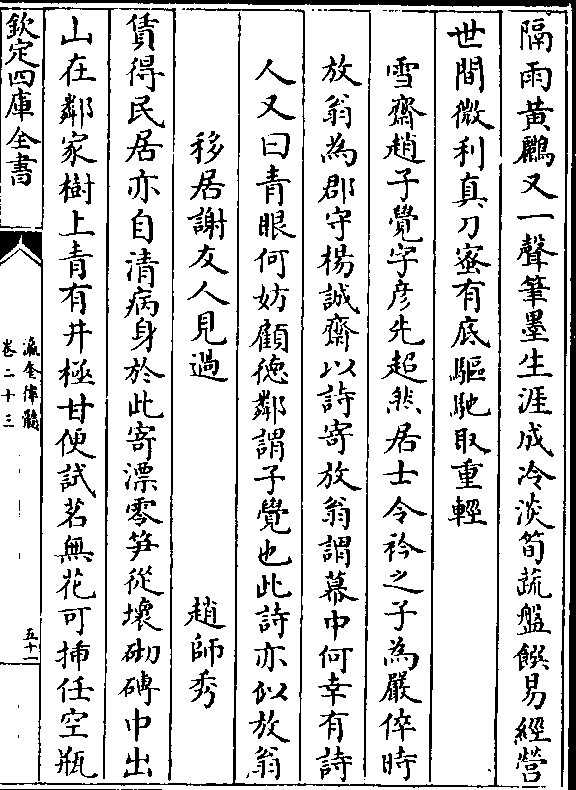 隔雨黃鸝又一聲筆墨生涯成冷淡筍蔬盤饌易經營
世間微利真刀蜜有底驅馳取重輕
雪齋趙子覺字彦先超然居士令衿之子為嚴倅時
放翁為郡守楊誠齋以詩寄放翁謂幕中何幸有詩
人又曰青眼何妨顧徳鄰謂子覺也此詩亦似放翁
移居謝友人見過 趙師秀
賃得民居亦自清病身於此寄漂零笋從壞砌磚中出
山在鄰家樹上青有井極甘便試茗無花可揷任空瓶
欽定四庫全書
瀛奎律髓
卷二十三
五十一